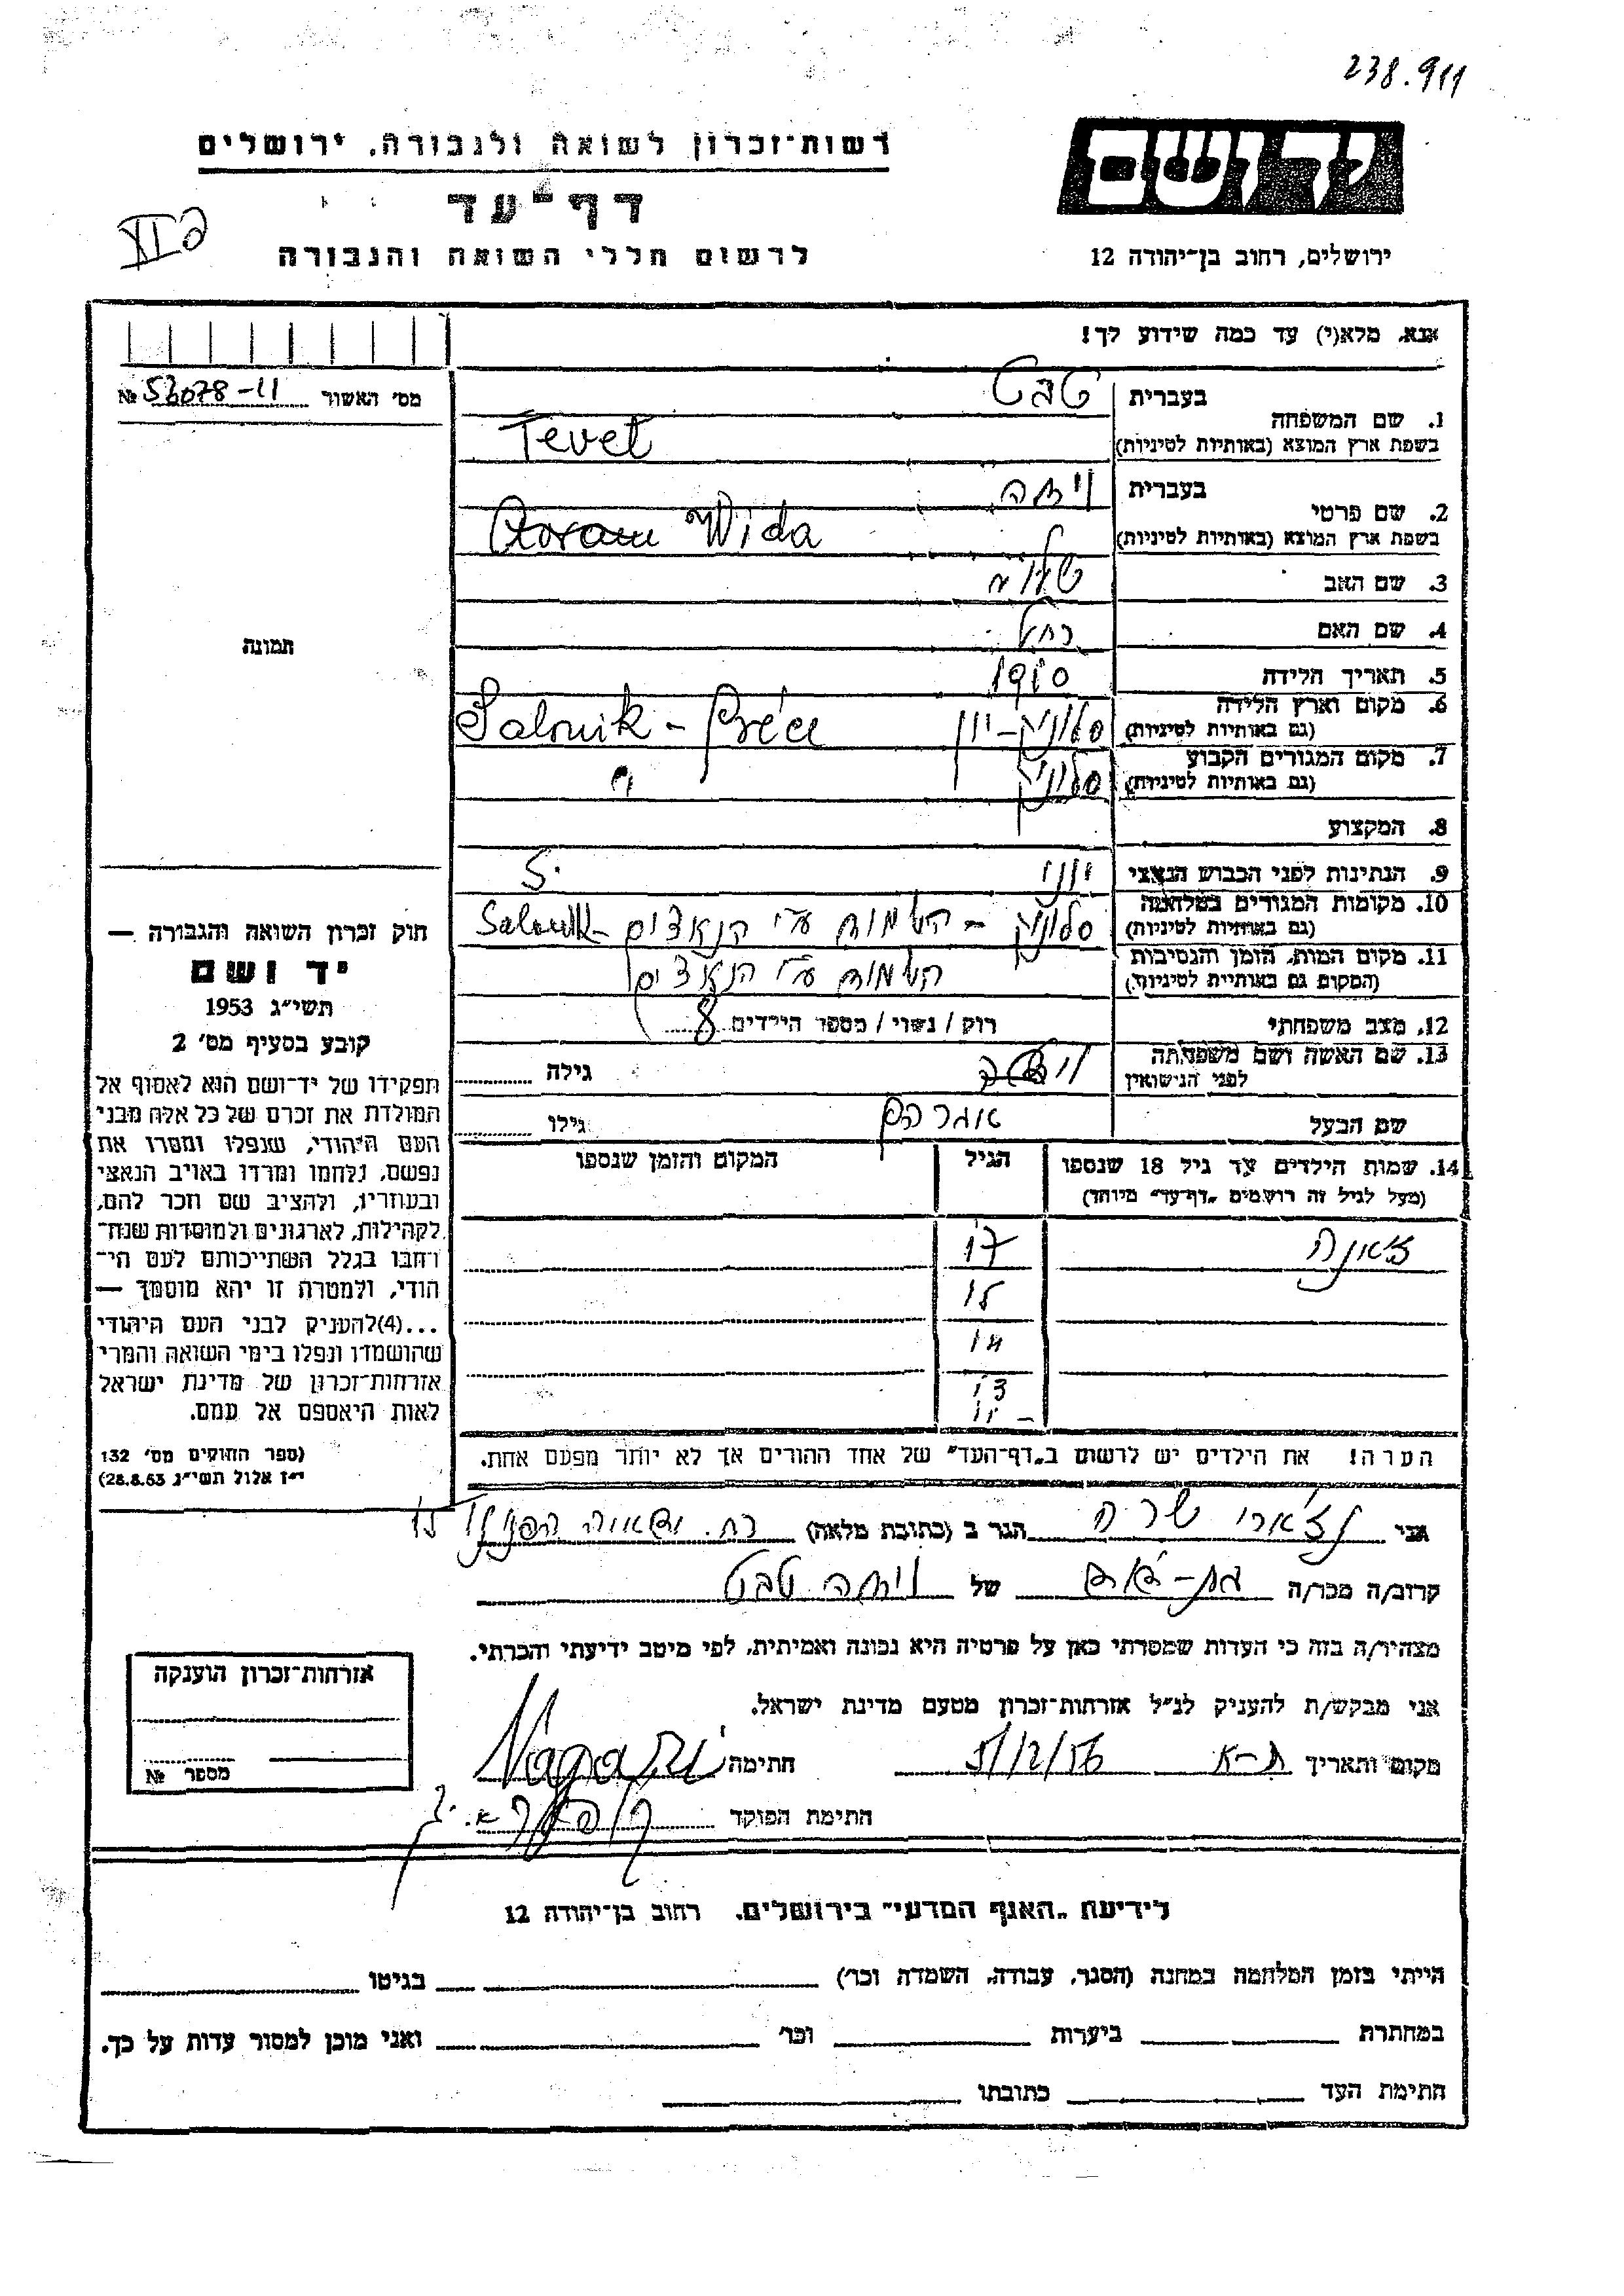 238.911
רשות־זכרון לשואה ולגבורה, ירושלים
דף־עד
לרשום חללי השואה והגבורה
יד ושם
ירושלים, רחוב בן־יהודה 12
אנא, מלא(י) עד כמה שידוע לך!
מס׳ האשור № 53078-11
תמונה
1. שם המשפחה בעברית טבט
בשפת ארץ המוצא (באותיות לטיניות) Tevet
2. שם פרטי בעברית וידה
בשפת ארץ המוצא (באותיות לטיניות) Wida
3. שם האב שלמה
4. שם האם רחל
5. תאריך הלידה 1910
6. מקום וארץ הלידה (גם באותיות לטיניות) סלוניק - יון Salonik - Gréce
7. מקום המגורים הקבוע (גם באותיות לטיניות) סלוניק "
8. המקצוע
9. הנתינות לפני הכבוש הנאצי יוני
10. מקומות המגורים במלחמה (גם באותיות לטיניות) סלוניק - הושמדה ע״י הנאצים Salonik
11. מקום המות, הזמן והנסיבות (המקום גם באותיות לטיניות) הושמדה ע״י הנאצים
12. מצב משפחתי רוק / נשוי / מספר הילדים 8
13. שם האשה ושם משפחתה לפני הנישואין גילה
שם הבעל אברהם גילו
14. שמות הילדים עד גיל 18 שנספו (מעל לגיל זה רושמים „דף־עד״ מיוחד) הגיל המקום והזמן שנספו
17
15
14
13
11
הערה! את הילדים יש לרשום ב„דף־העד״ של אחד ההורים אך לא יותר מפעם אחת.
חוק זכרון השואה והגבורה —
יד ושם
תשי״ג 1953
קובע בסעיף מס׳ 2
תפקידו של יד־ושם הוא לאסוף אל
המולדת את זכרם של כל אלה מבני
העם היהודי, שנפלו ומסרו את
נפשם, נלחמו ומרדו באויב הנאצי
ובעוזריו, ולהציב שם וזכר להם,
לקהילות, לארגונים ולמוסדות שנח־
רבו בגלל השתייכותם לעם הי־
הודי, ולמטרה זו יהא מוסמך —
...(4)להעניק לבני העם היהודי
שהושמדו ונפלו בימי השואה והמרי
אזרחות־זכרון של מדינת ישראל
לאות היאספם אל עמם.
(ספר החוקים מס׳ 132
י״ז אלול תשי״ג 28.8.53)
אני נג׳ארי שרה הגר ב (כתובת מלאה) רח.
קרוב/ה מכר/ה בת-דודה של וידה טבט
מצהיר/ה בזה כי העדות שמסרתי כאן על פרטיה היא נכונה ואמיתית, לפי מיטב ידיעתי והכרתי.
אני מבקש/ת להעניק לנ״ל אזרחות־זכרון מטעם מדינת ישראל.
מקום ותאריך ת-א 5/12/56 חתימה
חתימת הפוקד
אזרחות־זכרון הוענקה
מספר №
לידיעת „האגף המדעי״ בירושלים, רחוב בן־יהודה 12
הייתי בזמן המלחמה במחנה (הסגר, עבודה, השמדה וכו׳) בגיטו
במחתרת ביערות וכו׳ ואני מוכן למסור עדות על כך.
חתימת העד כתובתו